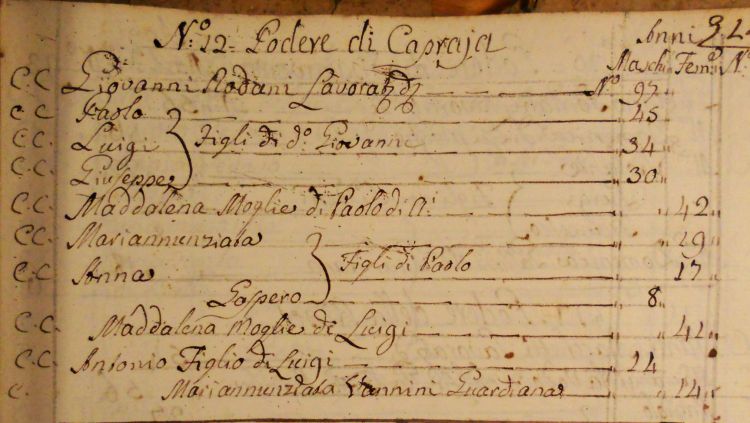 N.º 12 = Podere di Capraja
Anni
Maschi Fem.e N.º
C.C. Giovanni Rodani Lavorat.e N.º 97
C.C. Paolo 45
C.C. Luigi Figli di d.º Giovanni 34
C.C. Giuseppe 30
C.C. Maddalena Moglie di Paolo 42
C.C. Mariannunziata 29
C.C. Anna Figli di Paolo 17
Gaspero 8
C.C. Maddalena Moglie di Luigi 42
C.C. Antonio Figlio di Luigi 14
C. Mariannunziata Vannini Guardiana 14